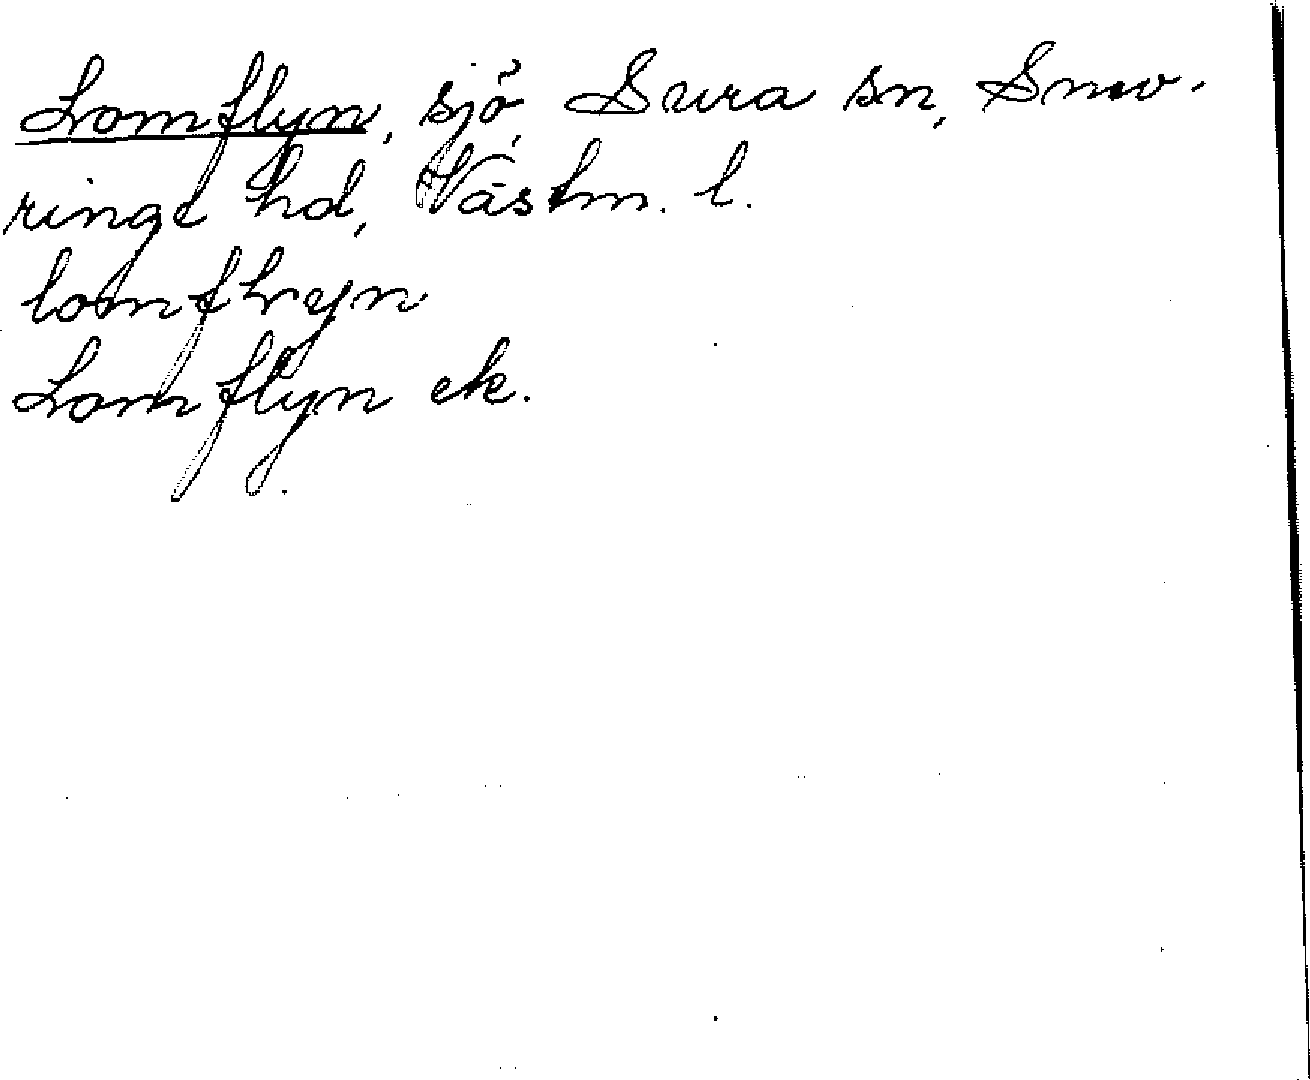 Lomflyn, sjö, Sura sn, Snev-
ringe hd, Västm. l.
lomflyn
Lomflyn ek.